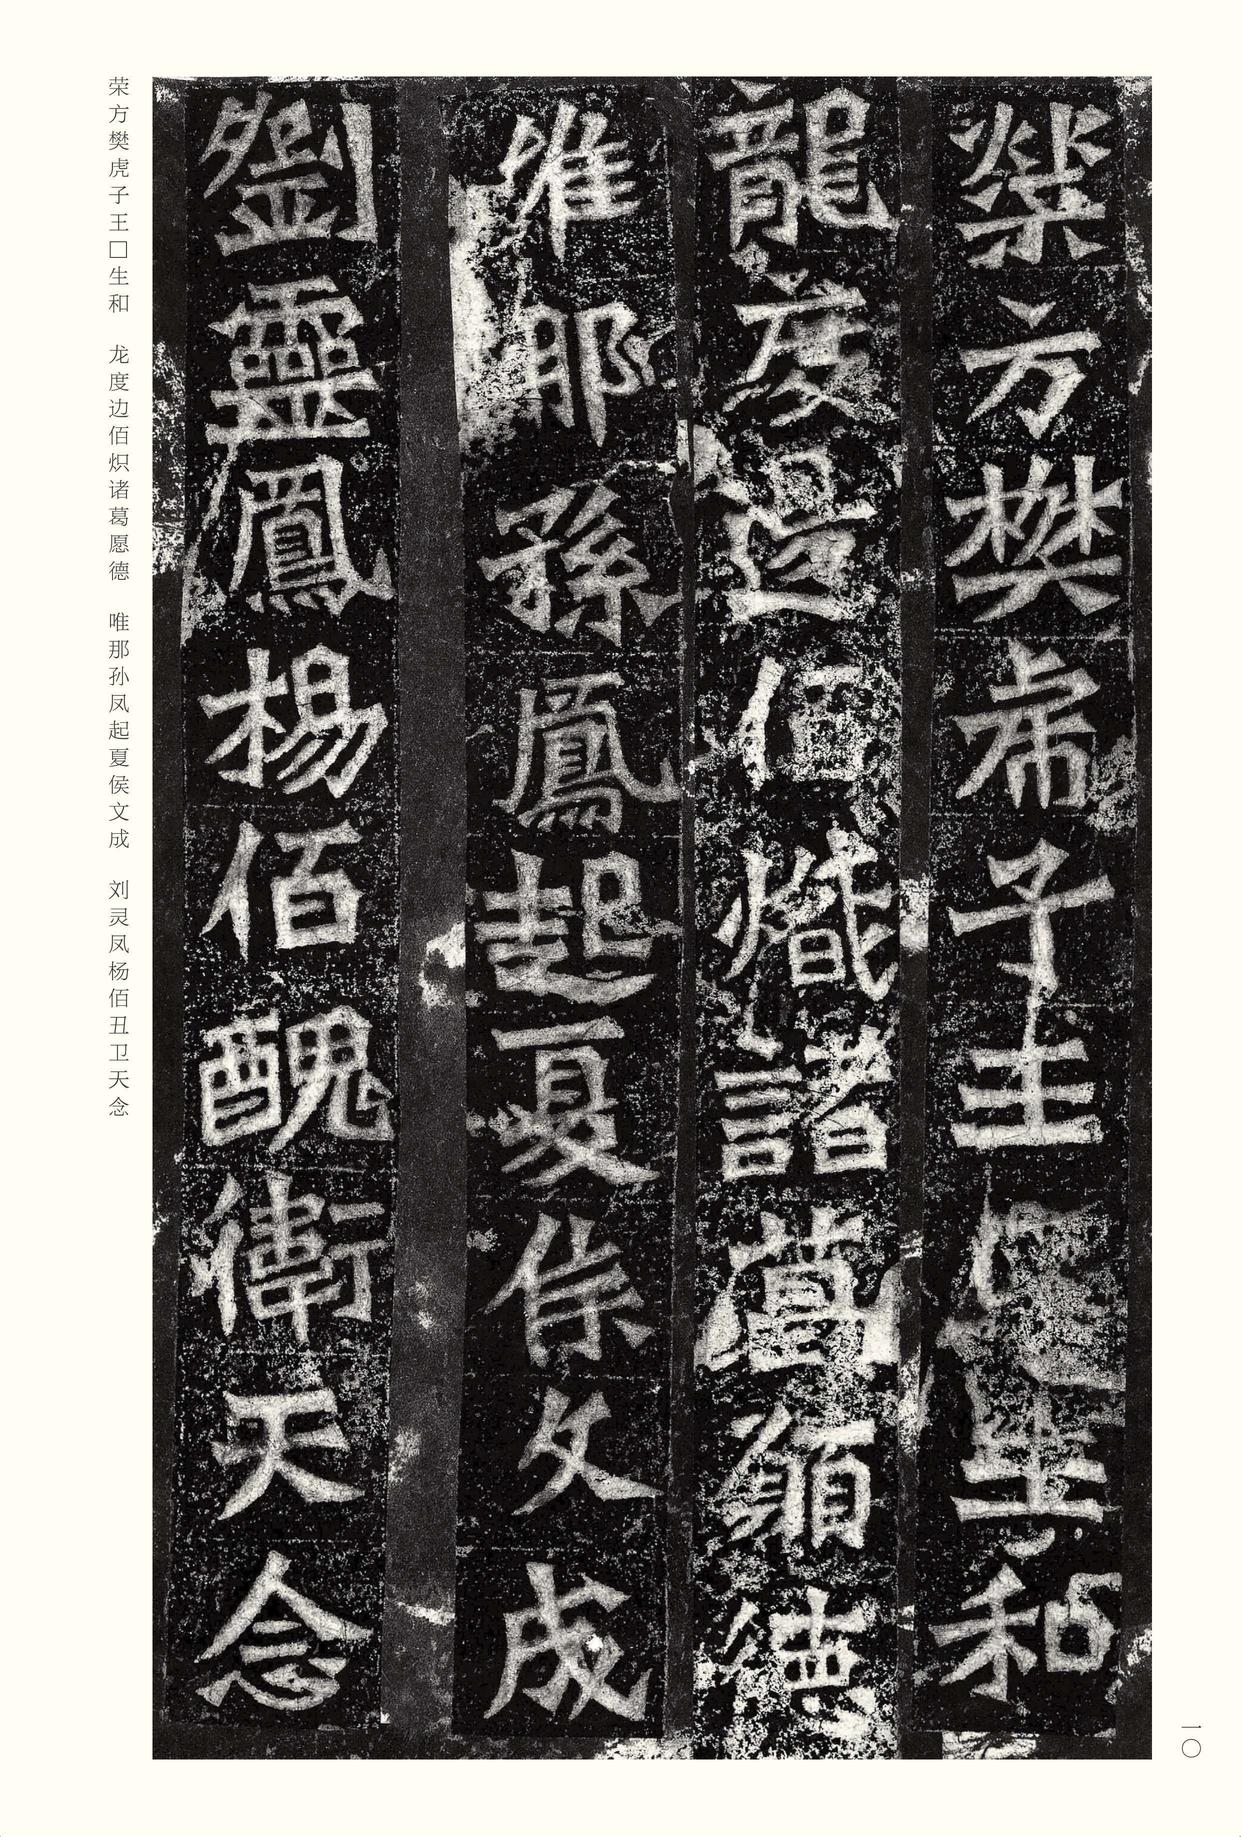 荣方樊虎子王□生和　龙度边佰炽诸葛愿德　唯那孙凤起夏侯文成　刘灵凤杨佰丑卫天念
方樊子王生和
龍度邊佰熾諸葛願德
唯那孫鳳起夏侯文成
劉靈鳳楊佰醜衛天念
一〇